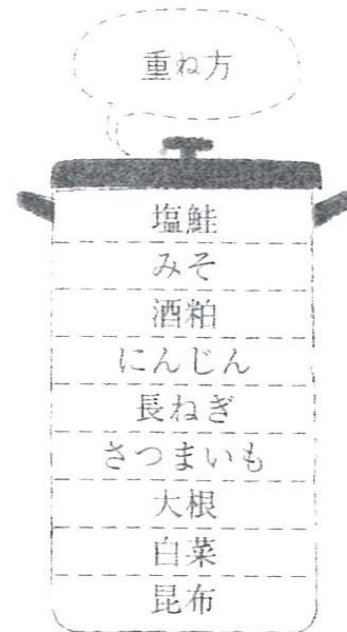 重ね方
塩鮭
みそ
酒粕
にんじん
長ねぎ
さつまいも
大根
白菜
昆布